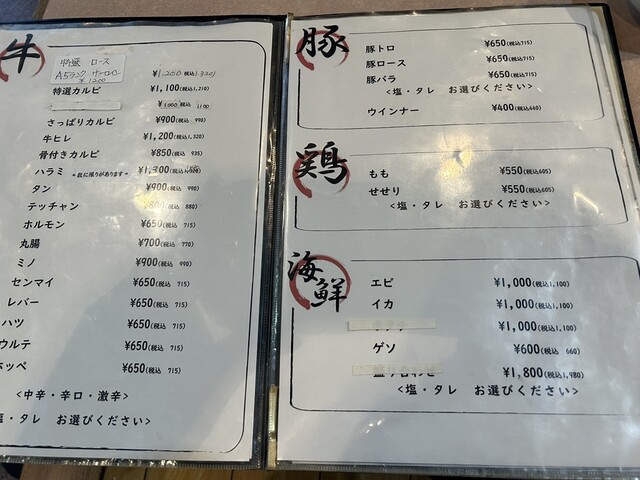 牛
ロース
¥1,200(税込1,320)
A5ランク サーロイン
¥1200
特選カルビ ¥1,100(税込1,210)
¥1000 税込 1100
さっぱりカルビ ¥900(税込 990)
牛ヒレ ¥1,200(税込1,320)
骨付きカルビ ¥850(税込 935)
ハラミ *数に限りがあります*
タン ¥900(税込 990)
テッチャン ¥800(税込 880)
ホルモン ¥650(税込 715)
丸腸 ¥700(税込 770)
ミノ ¥900(税込 990)
センマイ ¥650(税込 715)
レバー ¥650(税込 715)
ハツ ¥650(税込 715)
ウルテ ¥650(税込 715)
ホッペ ¥650(税込 715)
<中辛・辛口・激辛>
塩・タレ お選びください>
豚
豚トロ ¥650(税込715)
豚ロース ¥650(税込715)
豚バラ ¥650(税込715)
<塩・タレ お選びください>
ウインナー ¥400(税込440)
鶏
もも ¥550(税込605)
せせり ¥550(税込605)
<塩・タレ お選びください>
海鮮
エビ ¥1,000(税込1,100)
イカ ¥1,000(税込1,100)
¥1,000(税込1,100)
ゲソ ¥600(税込 660)
盛り合わせ ¥1,800(税込1,980)
<塩・タレ お選びください>